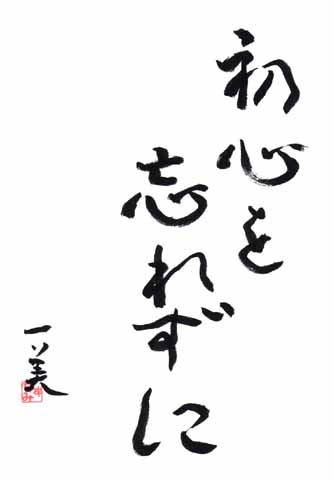 初心を
忘れずに
一美